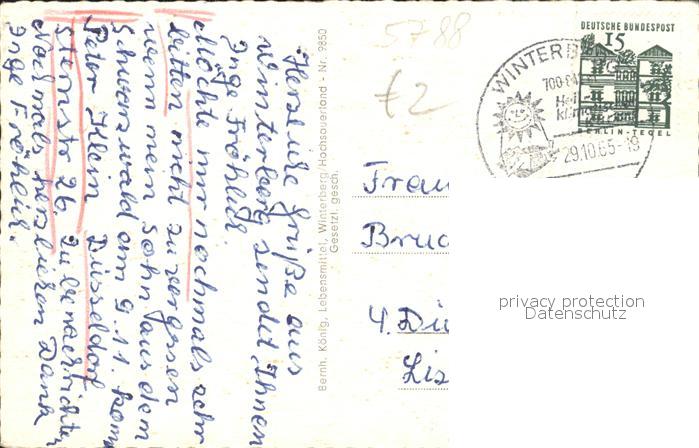 Herzliche Grüße aus
Winterberg sendet Ihnen
Inge Fröhlich.
Möchte nur nochmals sehr
bitten nicht zu vergessen
wenn mein Sohn aus dem
Schwarzwald am 9.11. kommt
Peter Klein Düsseldorf
sternstr 26 zu benachrichten
Nochmals herzlichen Dank
Inge Fröhlich.
Bernh. König, Lebensmittel, Winterberg/Hochsauerland - Nr. 9850
Gesetzl. gesch.
5788
€2
DEUTSCHE BUNDESPOST
15
BERLIN-TEGEL
WINTERB
29.10.65-19
Frau
Bruc
4. Dü
Lis
privacy protection
Datenschutz